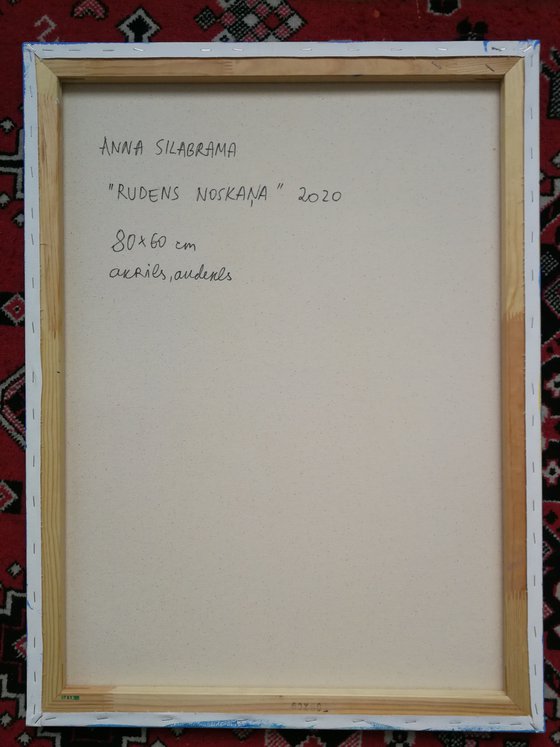 ANNA SILABRAMA
"RUDENS NOSKAŅA" 2020
80x60 cm
akrils, audekls